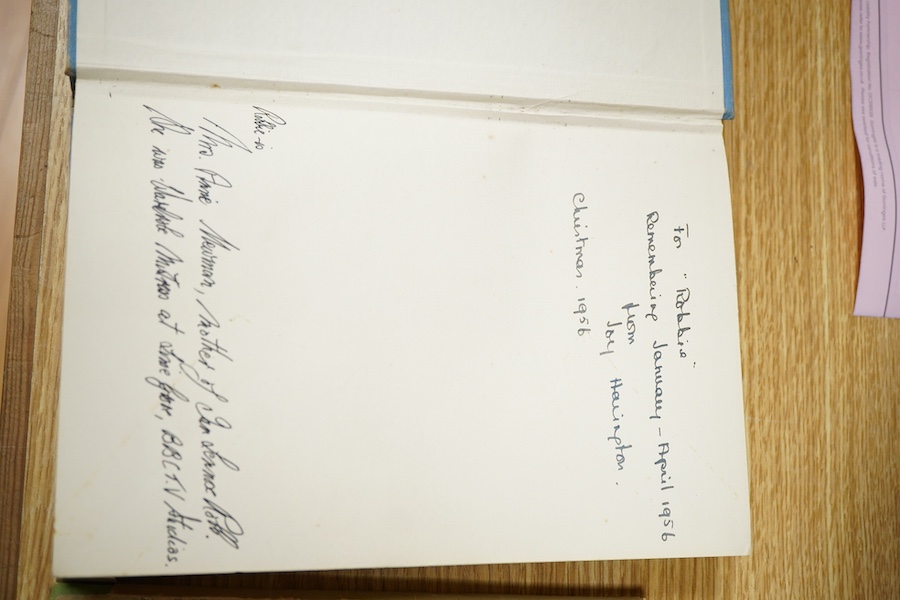 For "Robbie"
Remembering January - April 1956
from
Joy Harington.
Christmas. 1956
Robbie is
Mrs. Anne Newman, Mother of Ian
She was Wardrobe Mistress at Lime Grove, BBC T.V Studios.